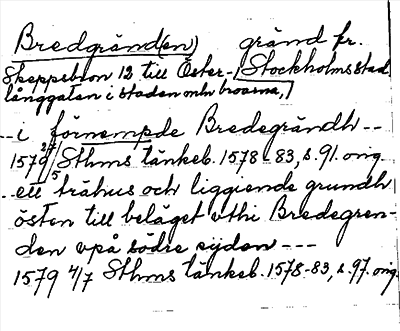 Bredgränd(en) gränd fr.
Skeppsbron 12 till Öster- Stockholms stad
långgatan i staden mln broarna,
--i förnempde Bredegrändh--
1579 27/5 Sthms tänkeb. 1578-83, s. 91. orig.
..ett trähus och liggiende grundh
östen till beläget vthi Bredegren-
den vpå södre sijdan ---
1579 4/7 Sthms tänkeb. 1578-83, s. 97. orig.